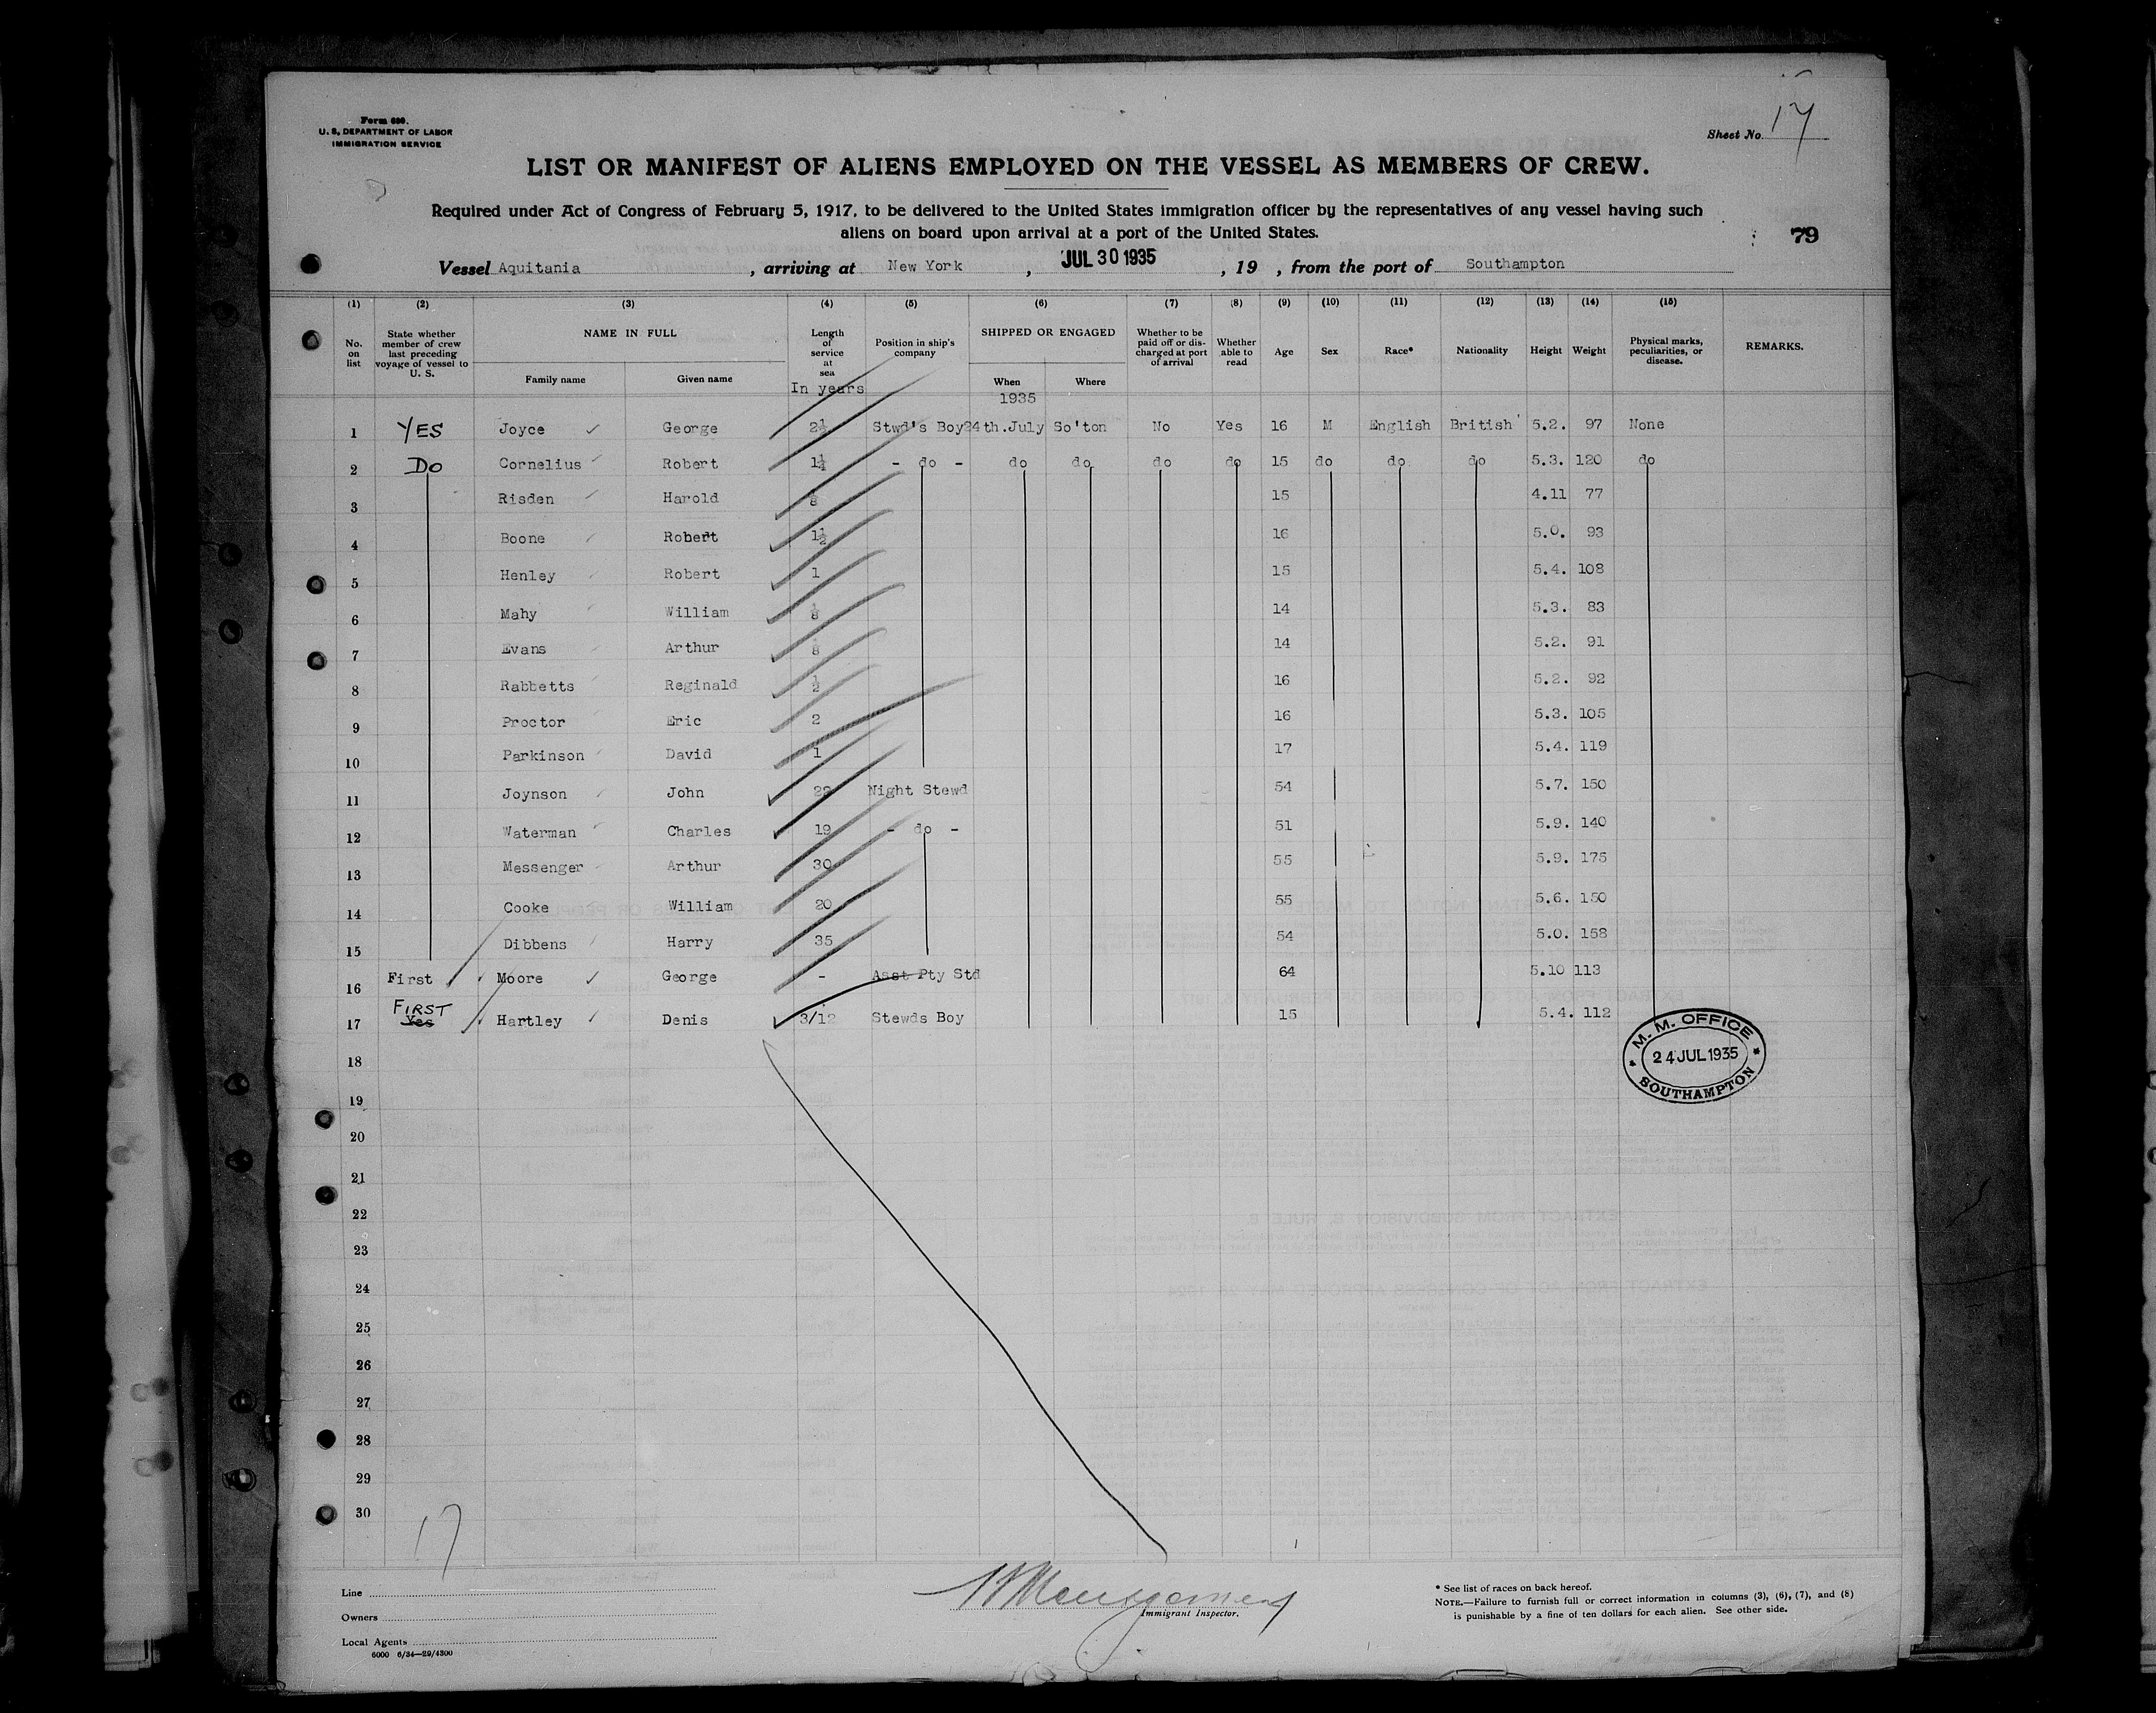 Form 680.
U. S. DEPARTMENT OF LABOR
IMMIGRATION SERVICE
Sheet No. 17
LIST OR MANIFEST OF ALIENS EMPLOYED ON THE VESSEL AS MEMBERS OF CREW.
Required under Act of Congress of February 5, 1917, to be delivered to the United States immigration officer by the representatives of any vessel having such
aliens on board upon arrival at a port of the United States.
79
Vessel Aquitania, arriving at New York, JUL 30 1935, 19 , from the port of Southampton
(1) (2) (3) (4) (5) (6) (7) (8) (9) (10) (11) (12) (13) (14) (15)
No. on list
State whether member of crew last preceding voyage of vessel to U. S.
NAME IN FULL
Family name
Given name
Length of service at sea
In years
Position in ship's company
SHIPPED OR ENGAGED
When
1935
Where
Whether to be paid off or discharged at port of arrival
Whether able to read
Age
Sex
Race*
Nationality
Height
Weight
Physical marks, peculiarities, or disease.
REMARKS.
1 YES Joyce George 2½ Stwd's Boy 24th.July So'ton No Yes 16 M English British 5.2. 97 None
2 Do Cornelius Robert 1¼ - do - do do do do 15 do do do 5.3. 120 do
3 Risden Harold 15 4.11 77
4 Boone Robert 1½ 16 5.0. 93
5 Henley Robert 1 15 5.4. 108
6 Mahy William ⅛ 14 5.3. 83
7 Evans Arthur 14 5.2. 91
8 Rabbetts Reginald ½ 16 5.2. 92
9 Proctor Eric 2 16 5.3. 105
10 Parkinson David 1 17 5.4. 119
11 Joynson John Night Stewd 54 5.7. 150
12 Waterman Charles 19 - do - 51 5.9. 140
13 Messenger Arthur 30 55 5.9. 175
14 Cooke William 20 55 5.6. 150
15 Dibbens Harry 35 54 5.0. 158
16 First Moore George - Asst Pty Std 64 5.10 113
17 FIRST Yes Hartley Denis 3/12 Stewds Boy 15 5.4. 112
M. M. OFFICE
24 JUL 1935
SOUTHAMPTON
18
19
20
21
22
23
24
25
26
27
28
29
30
17
Line
Owners
Local Agents
6000 6/34—29/4300
Immigrant Inspector.
* See list of races on back hereof.
NOTE.—Failure to furnish full or correct information in columns (3), (6), (7), and (8)
is punishable by a fine of ten dollars for each alien. See other side.